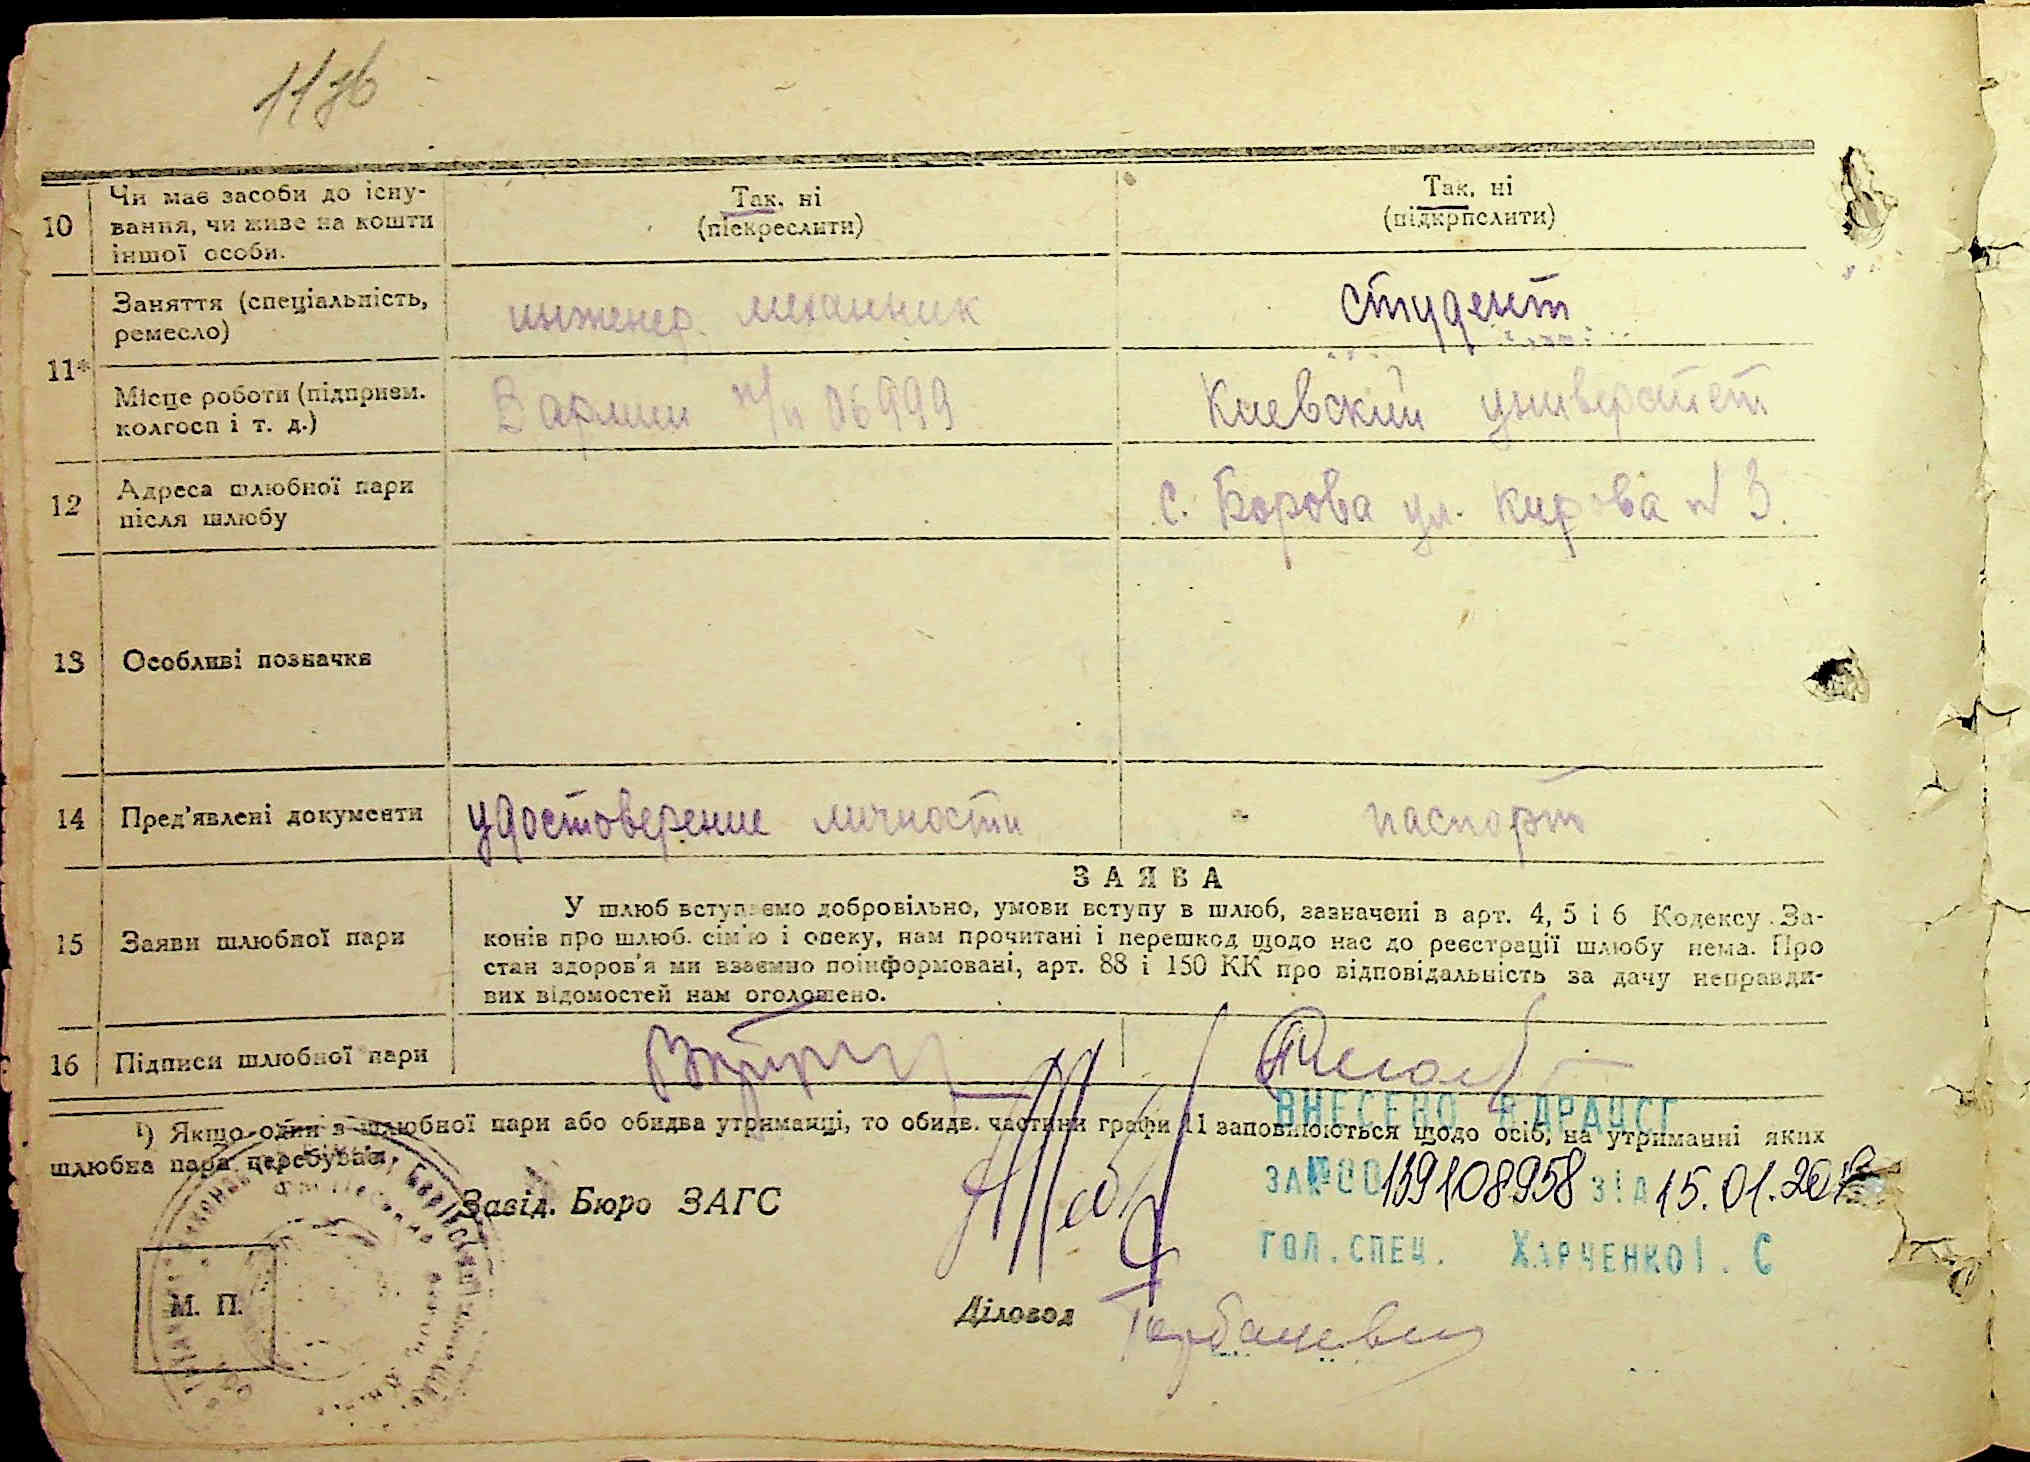 10 Чи має засоби до існу-
вання, чи живе на кошти
іншої особи.
Так, ні
(піскреслити)
Так, ні
(підкрпслити)
11* Заняття (спеціальність,
ремесло)
инженер. механник
студент
Місце роботи (підприєм.
колгосп і т. д.)
В армии п/п 06999
Киевский университет
12 Адреса шлюбної пари
після шлюбу
с. Борова ул. Кирова № 3.
13 Особливі позначки
14 Пред'явлені документи
удостоверение личности
паспорт
15 Заяви шлюбної пари
ЗАЯВА
У шлюб вступаємо добровільно, умови вступу в шлюб, зазначені в арт. 4, 5 і 6 Кодексу За-
конів про шлюб. сім'ю і опеку, нам прочитані і перешкод щодо нас до реєстрації шлюбу нема. Про
стан здоров'я ми взаємно поінформовані, арт. 88 і 150 КК про відповідальність за дачу неправди-
вих відомостей нам оголошено.
16 Підписи шлюбної пари
¹) Якщо один в шлюбної пари або обидва утриманці, то обидв. частини графи 11 заповнюються щодо осіб, на утриманні яких
шлюбна пара перебуває.
ВНЕСЕНО В ДРАЦСГ
ЗА №00139108958 ВІД 15.01.20
Завід. Бюро ЗАГС
ГОЛ. СПЕЦ. ХАРЧЕНКО І. С
М. П.
Діловод